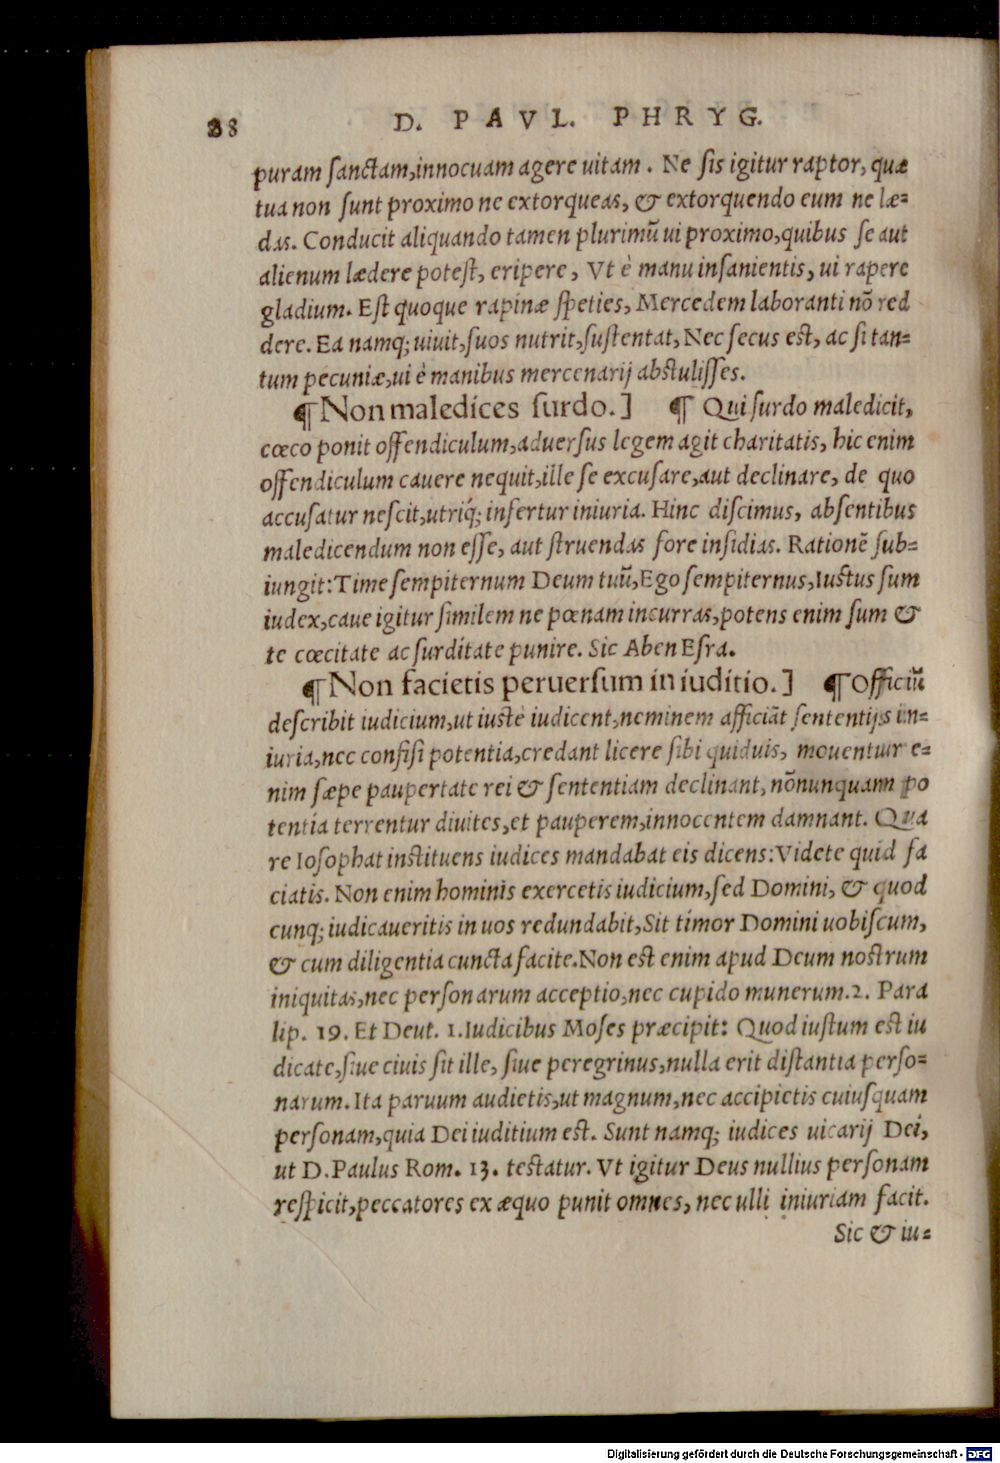 28 D. PAVL. PHRYG.
puram sanctam,innocuam agere uitam. Ne sis igitur raptor, quæ
tua non sunt proximo ne extorqueas, & extorquendo eum ne læ=
das. Conducit aliquando tamen plurimũ ui proximo,quibus se aut
alienum lædere potest, eripere, Vt è manu insanientis, ui rapere
gladium. Est quoque rapinæ speties, Mercedem laboranti nõ red
dere. Ea namq; uiuit,suos nutrit,sustentat, Nec secus est, ac si tan=
tum pecuniæ,ui è manibus mercenarij abstulisses.
¶ Non maledices surdo.] ¶ Qui surdo maledicit,
cœco ponit offendiculum,aduersus legem agit charitatis, hic enim
offendiculum cauere nequit,ille se excusare,aut declinare, de quo
accusatur nescit,utriq́; infertur iniuria. Hinc discimus, absentibus
maledicendum non esse, aut struendas fore insidias. Rationẽ sub=
iungit:Time sempiternum Deum tuũ,Ego sempiternus,Iustus sum
iudex,caue igitur similem ne pœnam incurras,potens enim sum &
te cœcitate ac surditate punire. Sic Aben Esra.
¶ Non facietis peruersum in iuditio.] ¶ Officiũ
describit iudicium,ut iustè iudicent,neminem afficiãt sententijs in=
iuria,nec confisi potentia,credant licere sibi quiduis, mouentur e=
nim sæpe paupertate rei & sententiam declinant, nõnunquam po
tentia terrentur diuites,et pauperem,innocentem damnant. Qua
re Iosophat instituens iudices mandabat eis dicens:Videte quid fa
ciatis. Non enim hominis exercetis iudicium,sed Domini, & quod
cunq; iudicaueritis in uos redundabit,Sit timor Domini uobiscum,
& cum diligentia cuncta facite.Non est enim apud Deum nostrum
iniquitas,nec personarum acceptio,nec cupido munerum.2. Para
lip. 19. Et Deut. 1.Iudicibus Moses præcipit: Quod iustum est iu
dicate,siue ciuis sit ille, siue peregrinus,nulla erit distantia perso=
narum. Ita paruum audietis,ut magnum,nec accipietis cuiusquam
personam,quia Dei iuditium est. Sunt namq; iudices uicarij Dei,
ut D. Paulus Rom. 13. testatur. Vt igitur Deus nullius personam
respicit,peccatores ex æquo punit omnes, nec ulli iniuriam facit.
Sic & iu=
Digitalisierung gefördert durch die Deutsche Forschungsgemeinschaft - DFG